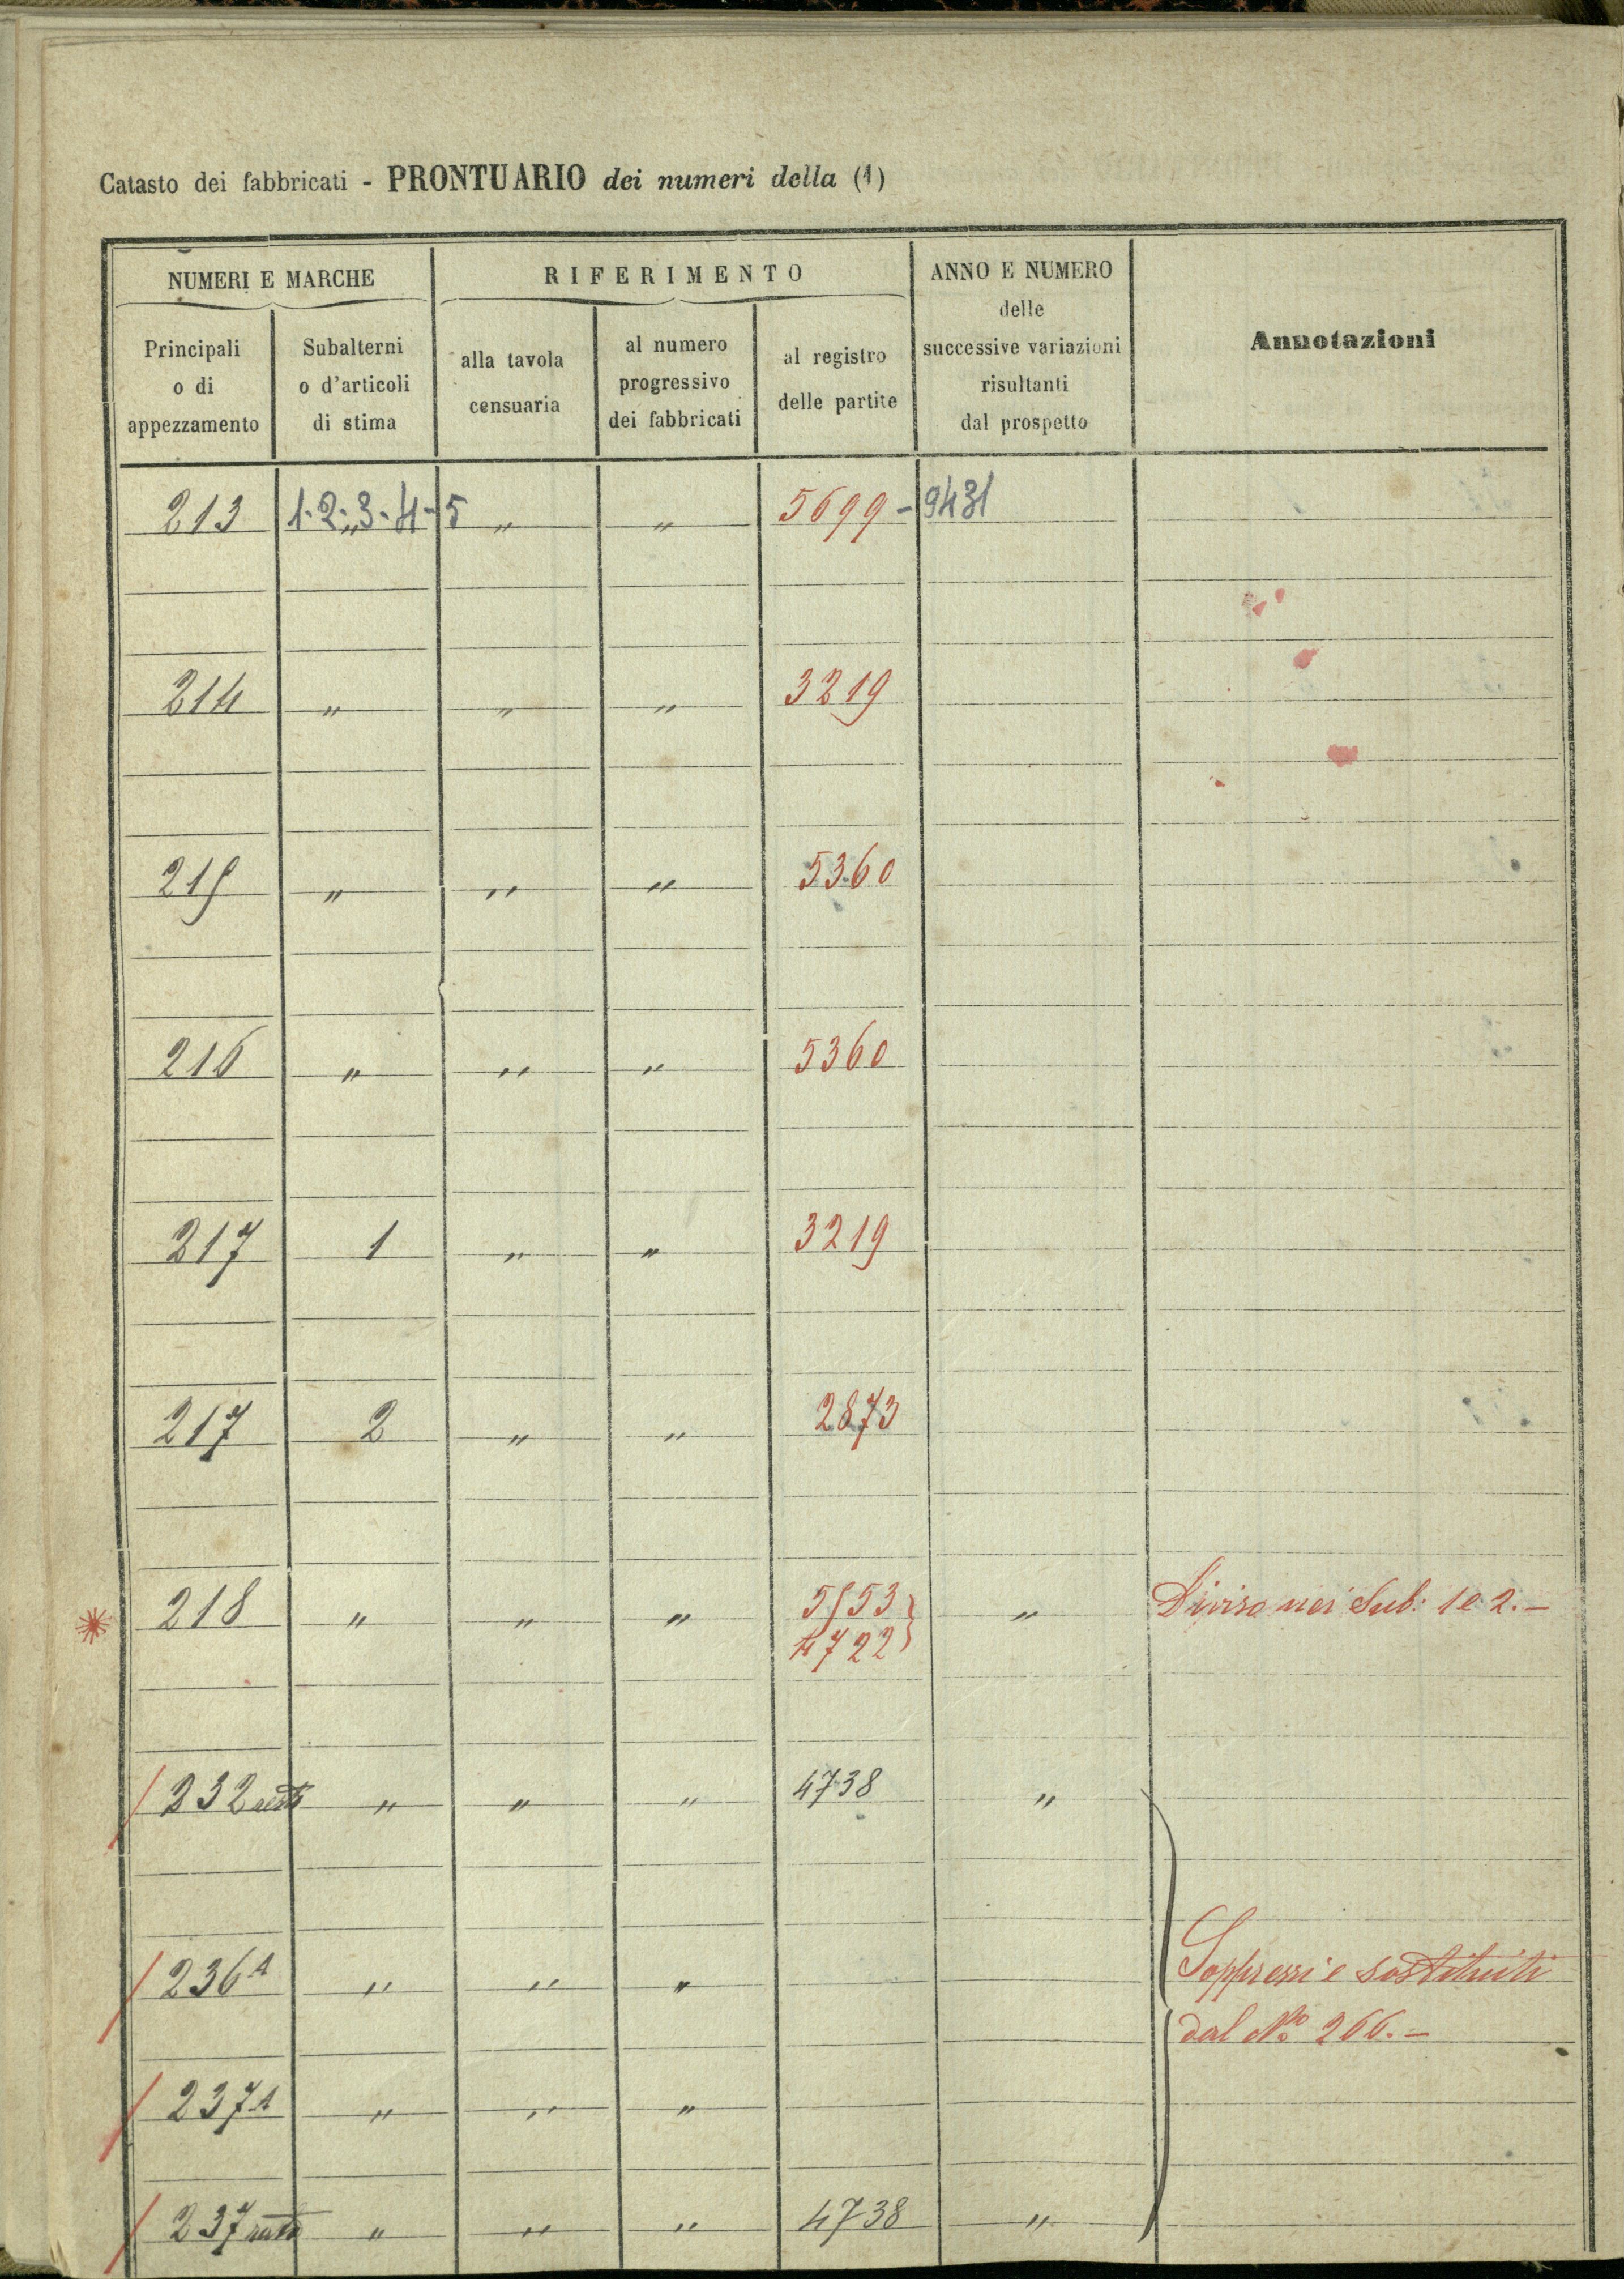 Catasto dei fabbricati - PRONTUARIO dei numeri della (1)
NUMERI E MARCHE
RIFERIMENTO
ANNO E NUMERO
delle
successive variazioni
risultanti
dal prospetto
Annotazioni
Principali
o di
appezzamento
Subalterni
o d'articoli
di stima
alla tavola
censuaria
al numero
progressivo
dei fabbricati
al registro
delle partite
213 1-2-„3-4-5 „ „ 5699 - 9431
214 „ „ „ 3219
215 „ „ „ 5360
216 „ „ „ 5360
217 1 „ „ 3219
217 2 „ „ 2873
218 „ „ „ 5553 „ Diviso nei Sub: 1 e 2.-
4722
232 resto „ „ „ 4738 „
236 A „ „ „ Soppressi e sostituiti
dal No 266.-
237 A „ „ „
237 resto „ „ „ 4738 „